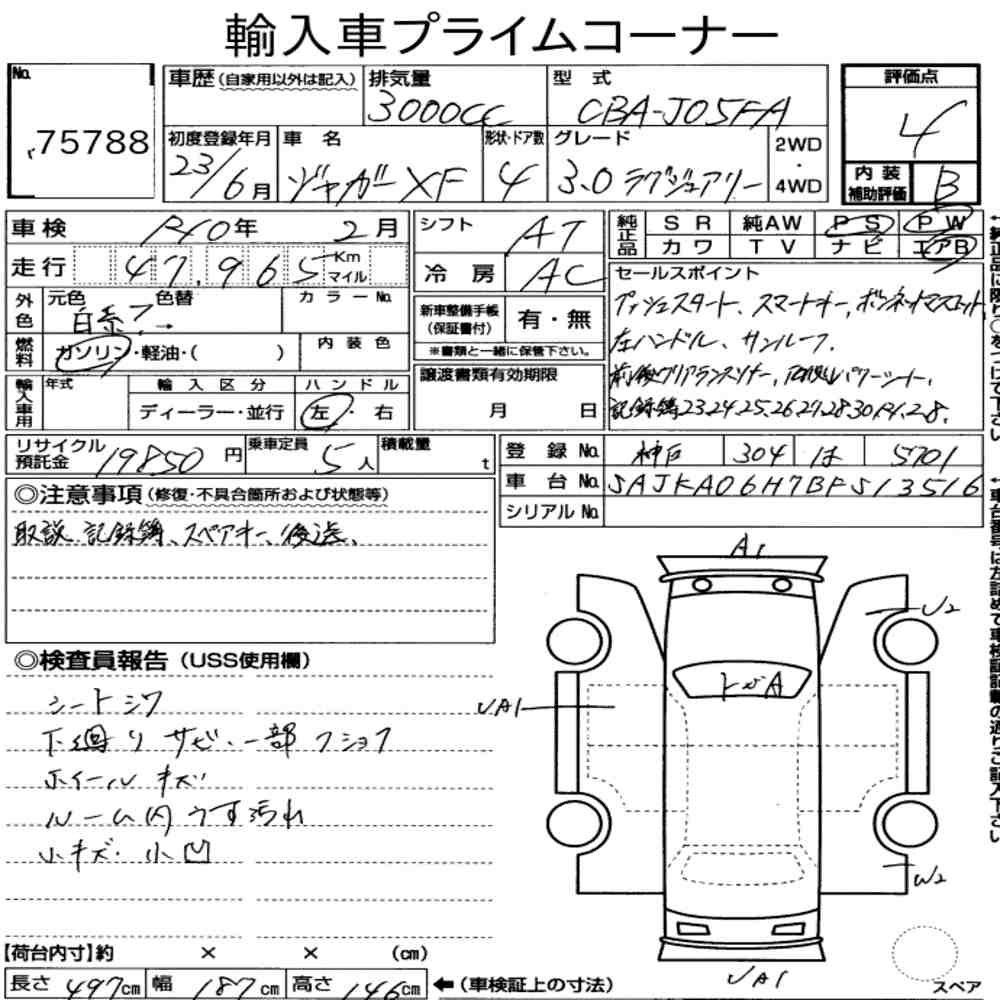 輸入車プライムコーナー
No. 75788
車歴(自家用以外は記入)
排気量 3000cc
型式 CBA-J05FA
評価点 4
初度登録年月 23/6月
車名 ジャガーXF
形状・ドア数 4
グレード 3.0 ラグジュアリー
2WD・4WD
内装補助評価 B
車検 R10年 2月
シフト AT
純正品 SR 純AW PS PW
カワ TV ナビ エアB
走行 47,965 Km マイル
冷房 AC
セールスポイント
プッシュスタート、スマートキー、ボンネットマスコット、
左ハンドル、サンルーフ、
前後クリアランスソナー、両側パワーシート、
記録簿23.24.25.26.27.28.30.R1.2.8.
外色 元色 色替 カラーNo.
白系?→
新車整備手帳(保証書付) 有・無
※書類と一緒に保管下さい。
燃料 ガソリン・軽油・( )
内装色
譲渡書類有効期限
月 日
輸入車用 年式 輸入区分 ハンドル
ディーラー・並行 左・右
リサイクル預託金 19850円
乗車定員 5人
積載量 t
登録No. 神戸 304 は 5701
車台No. SAJKA06H7BFS13516
シリアルNo.
◎注意事項(修復・不具合箇所および状態等)
取説、記録簿、スペアキー、後送、
◎検査員報告(USS使用欄)
シートシワ
下廻りサビ・一部フショク
ホイールキズ
ルーム内うす汚れ
小キズ・小凹
A1
U2
トビA
UA1
W2
UA1
スペア
【荷台内寸】約 × × (cm)
長さ 497cm 幅 187cm 高さ 146cm ←(車検証上の寸法)